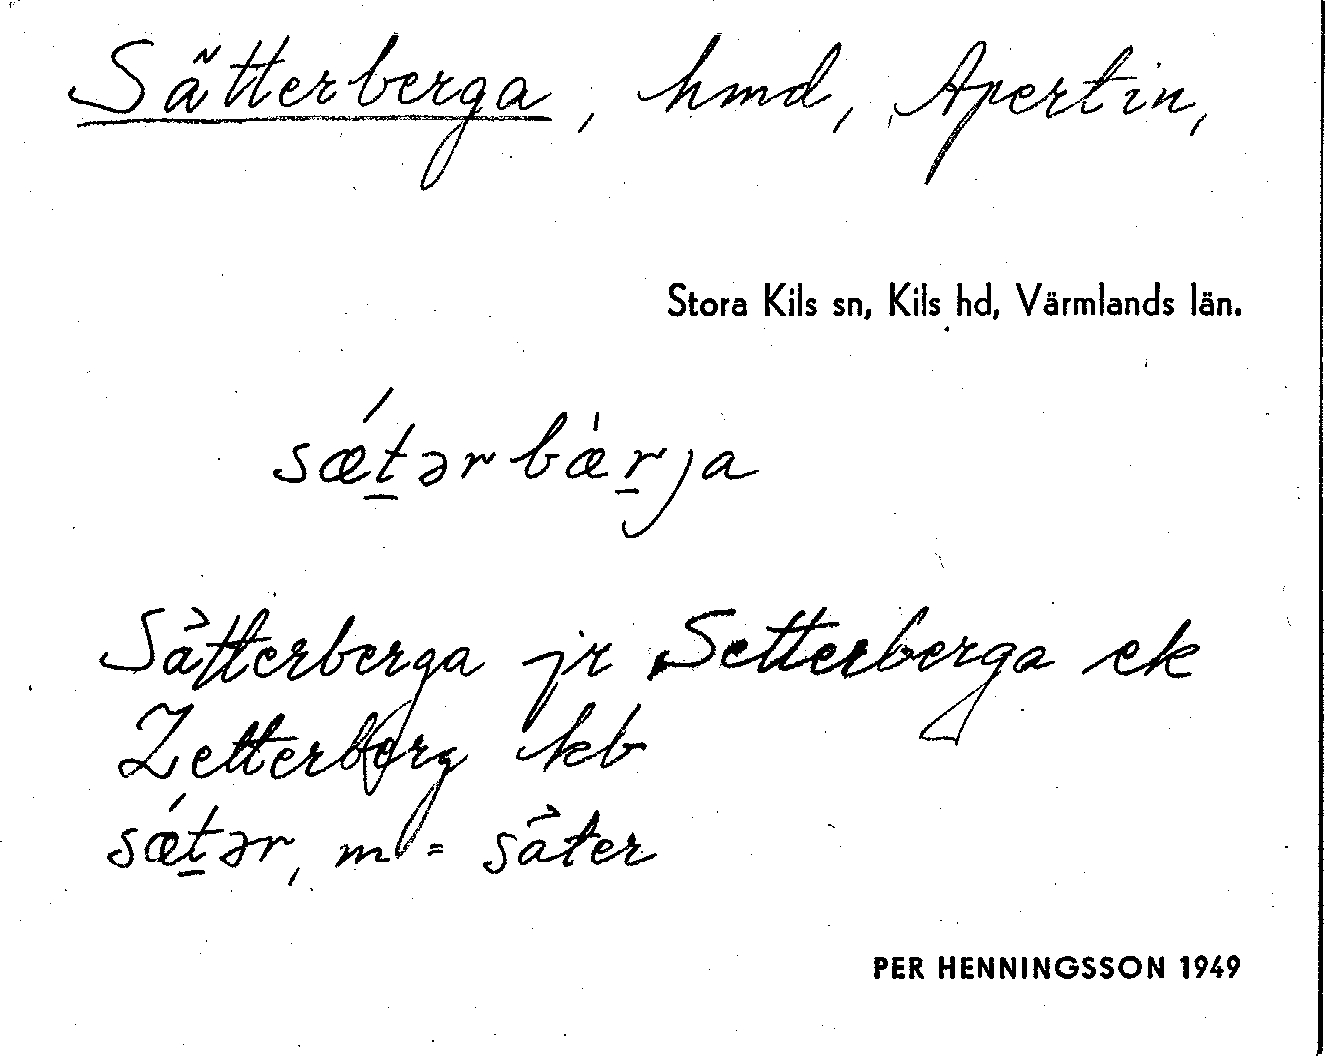 Sätterberga, hmd, Apertin,
Stora Kils sn, Kils hd, Värmlands län.
sǽt̲ərbæ̀r̲ja
Sätterberga jr Setterberga ek
Zetterberg kb
sǽt̲ər, m = säter
PER HENNINGSSON 1949